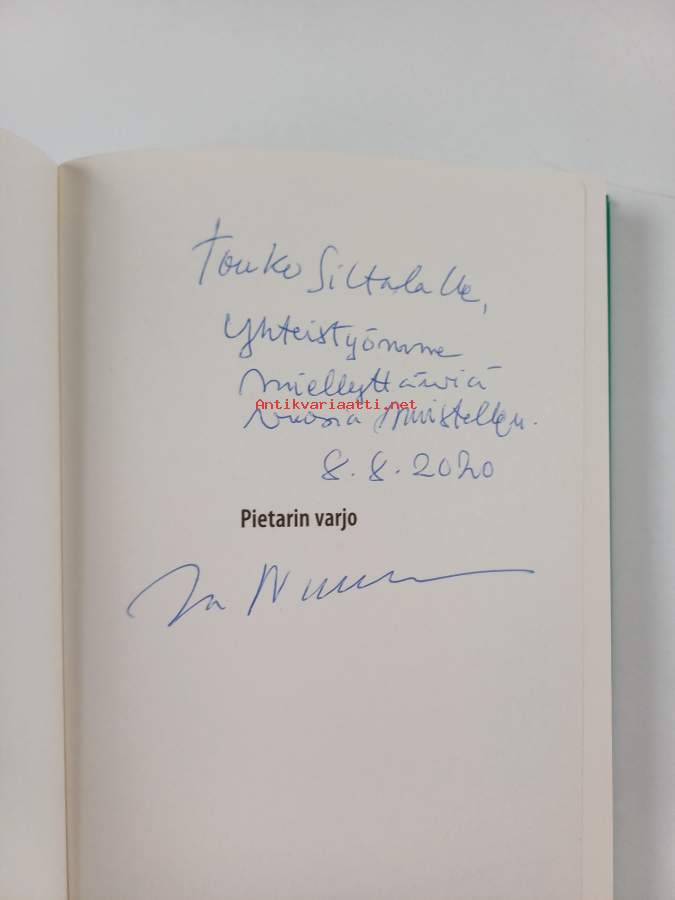 Touko Siltalalle,
Yhteistyömme
miellyttäviä
Antikvariaatti.net
vuosia muistellen.
8.8.2020
Pietarin varjo